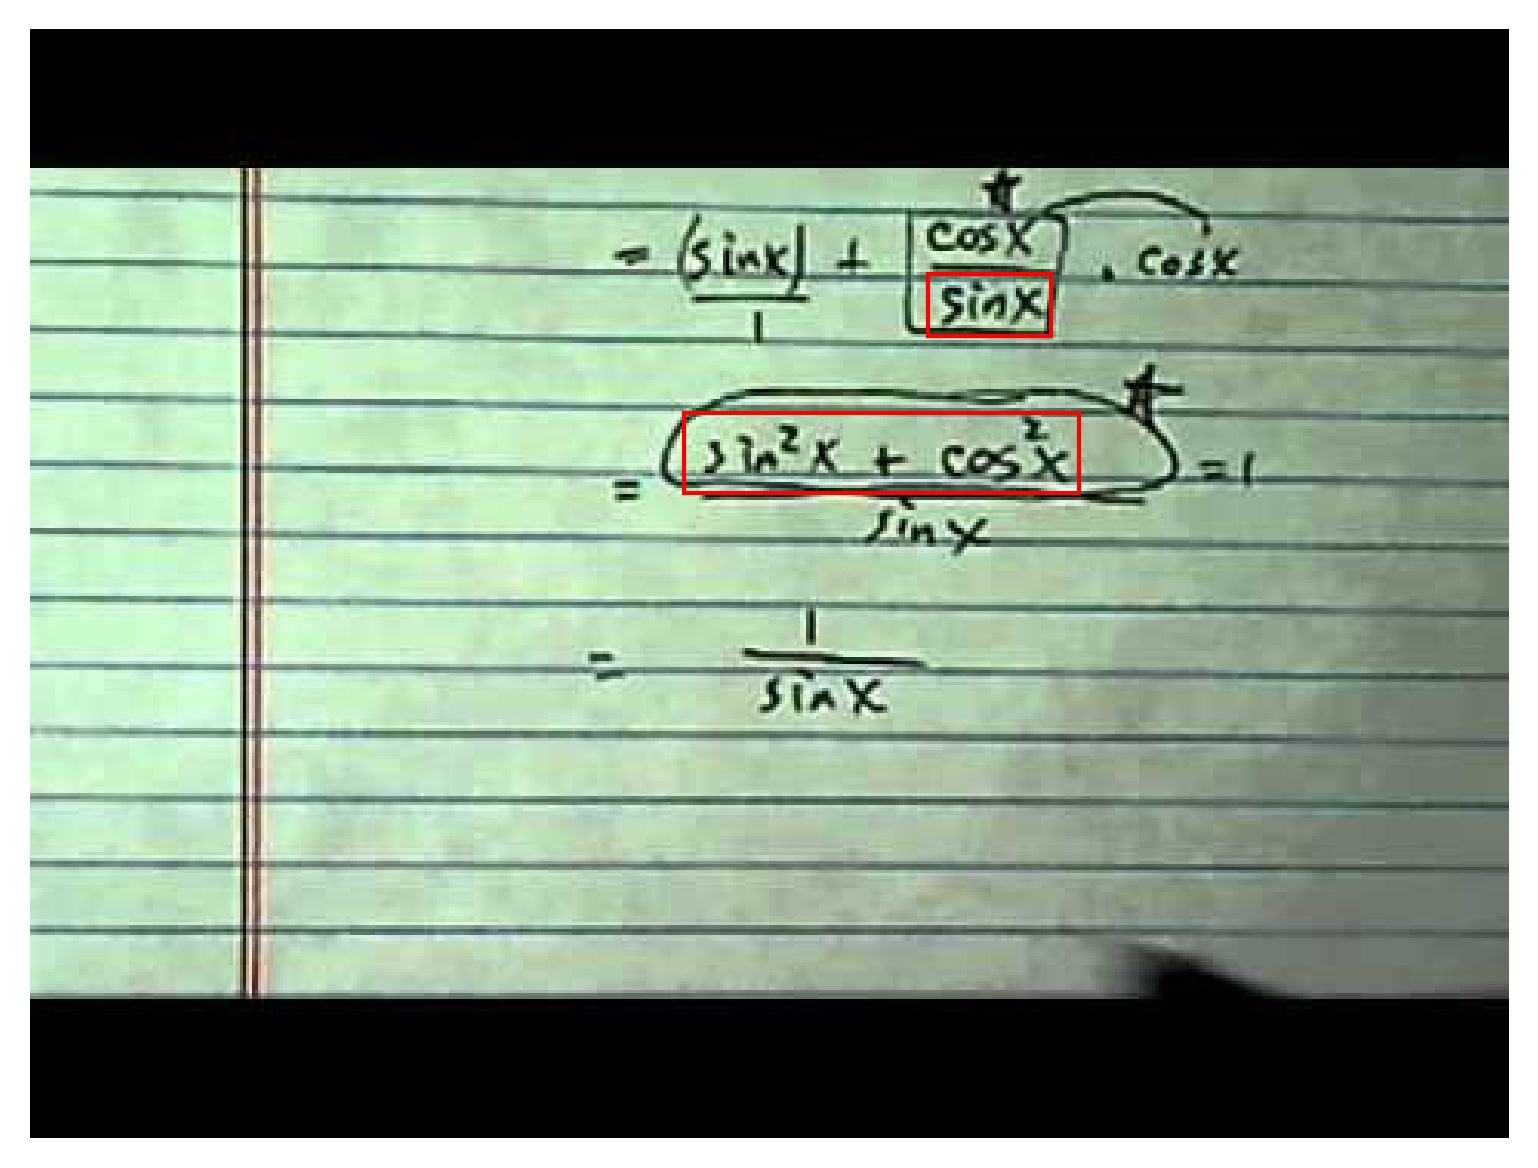 = (sinx)/1 + cosx/sinx . cosx
= (sin²x + cos²x)/sinx = 1
= 1/sinx